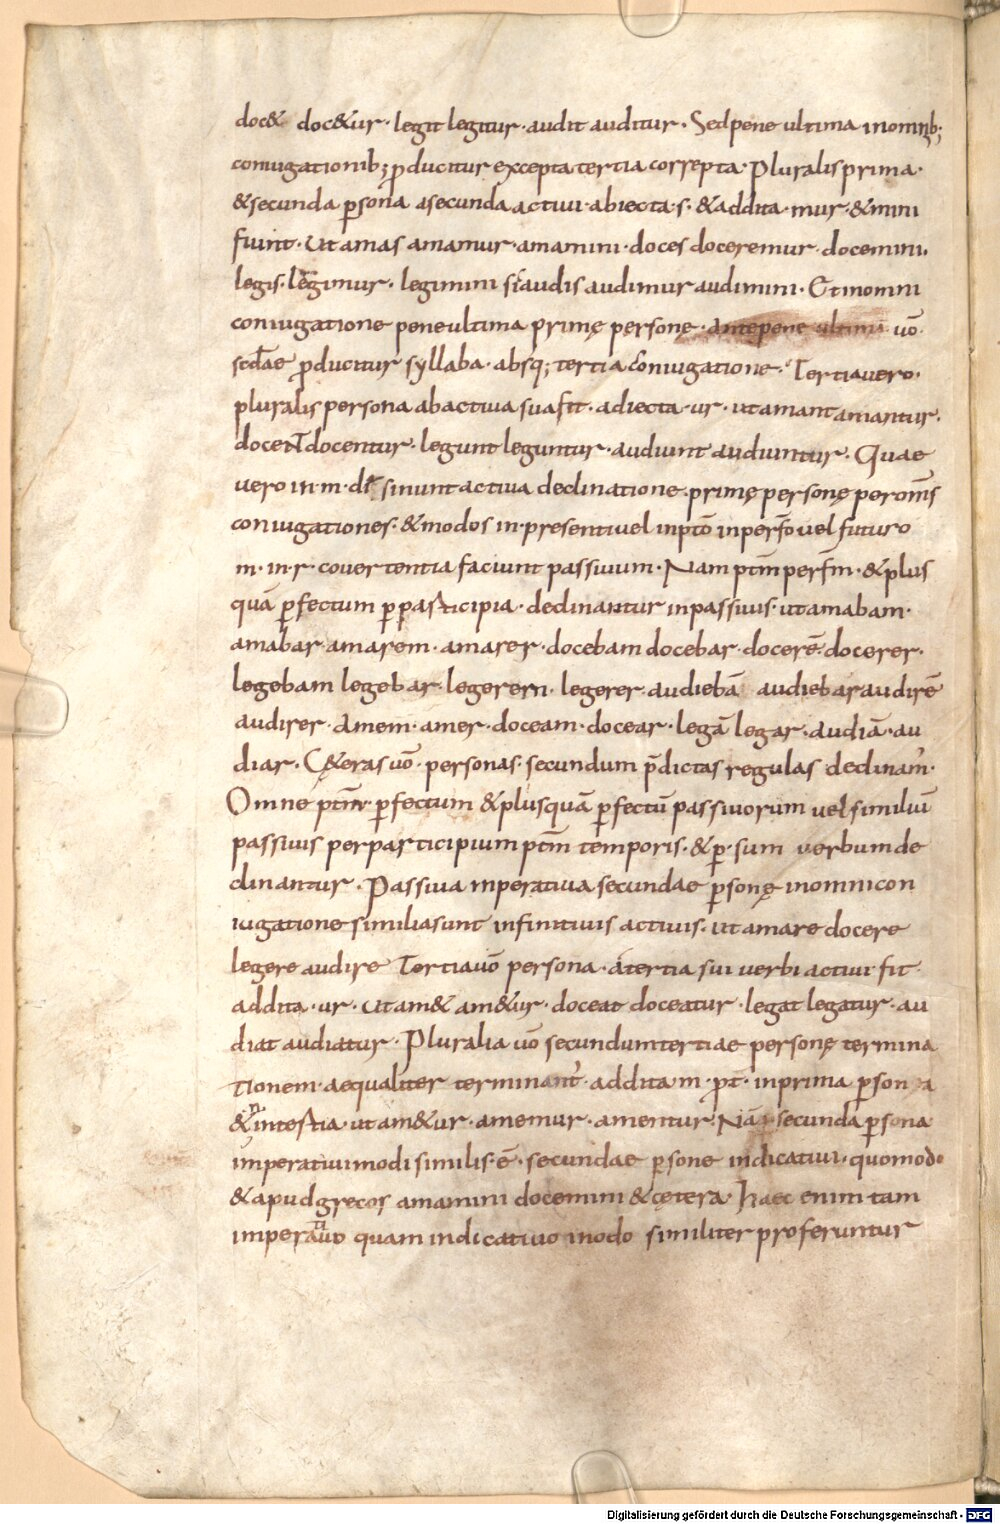 doc& doc&ur· legit legitur· audit auditur· Sed pene ultima inomnib;
coniugationib; ꝓducitur excepta tertia correpta· Pluralis prima·
& secunda ꝑsona a secunda activi· abiecta· s· & addita· mur· & mini
fiunt· Ut amas amamur· amamini· doces doceremur docemini·
legis· legimur· legimini si audis audimur audimini· Et inomni
coniugatione peneultima primę personę· antepene ultimi uō·
scdae ꝓducitur syllaba· absq; tertia coniugatione· Tertia uero·
pluralis persona ab activa sua fit· adiecta· ur· ut amant amantur·
docent docentur· legunt leguntur· audiunt audiuntur· Quae
uero in· m· di sinunt activa declinatione· primę personę per om̄s
coniugationes· & modos in· presenti uel inp̄to inperfc̄o uel futuro
m· in· r· couertentia faciunt passiuum· Nam p̄tm perf̄m· & plus
quā ꝑfectum ꝑ participia· declinantur inpassiuis· ut amabam·
amabar· amarem· amarer· docebam docebar· docerē· docerer·
legebam legebar· legerem· legerer· audiebā audiebar audirē
audirer· Amem· amer· doceam· docear· legā legar· audiā· au
diar· C&eras uō· personas· secundum p̄dictas regulas declinam̄·
Omne p̄tm· ꝑfectum & plusquā ꝑfectū passiuorum uel similiū
passiuis per participium p̄tm temporis· & ꝑ· sum uerbum de
clinantur· Passiua inperatiua secundae ꝑsonę inomni con
iugatione similia sunt infinitiuis activis· ut amare docere
legere audire Tertia uō persona· a tertia sui uerbi activi· fit
addita· ur· ut am& am&ur· doceat doceatur· legat legatur· au
diat audiatur· Pluralia uō secundum tertiae personę termina
tionem· aequaliter terminant̄· addita m· p̄t· inprima ꝑsona
& n in tertia· ut am&ur· amemur· amentur· Nā secunda ꝑsona
imperatiui modi similis· ē· secundae ꝑsone indicatiui· quomodo
& apud grecos amamini docemini & cętera· haec enim tam
imperatiuo quam indicatiuo modo similiter proferuntur
Digitalisierung gefördert durch die Deutsche Forschungsgemeinschaft - DFG